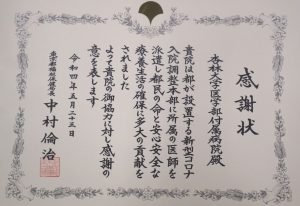 感謝状
杏林大学医学部付属病院殿
貴院は都が設置する新型コロナ
入院調整本部に所属の医師を
派遣し都民の命と安心安全な
療養生活の確保に多大の貢献を
されました
よって貴院の御協力に対し感謝の
意を表します
令和四年五月三十一日
東京都福祉保健局長
中村倫治